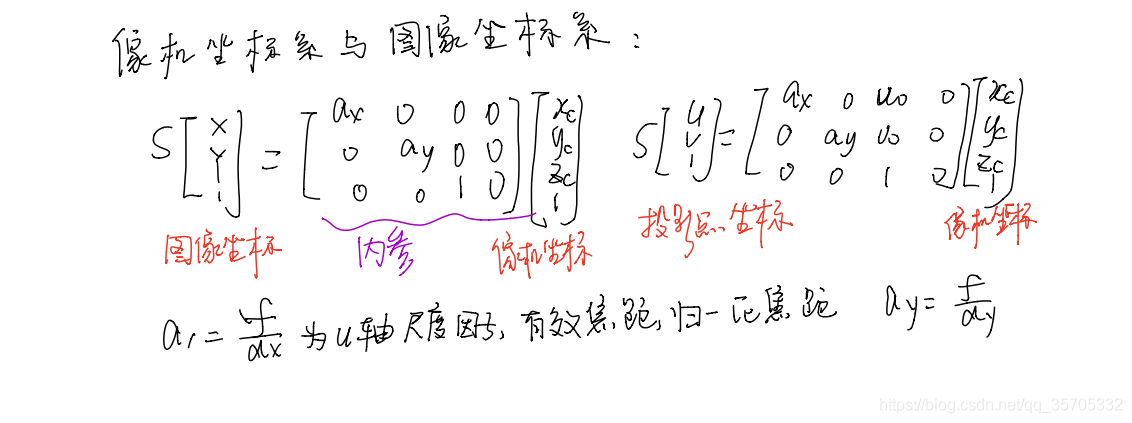 像机坐标系与图像坐标系:
S [X Y 1] = [ax 0 0 0; 0 ay 0 0; 0 0 1 0] [xc yc zc 1]
S [u v 1] = [ax 0 u0 0; 0 ay v0 0; 0 0 1 0] [xc yc zc 1]
图像坐标 内参 像机坐标 投影点坐标 像机坐标
ax = f/dx 为u轴尺度因子,有效焦距,归一化焦距 ay = f/dy
https://blog.csdn.net/qq_35705332